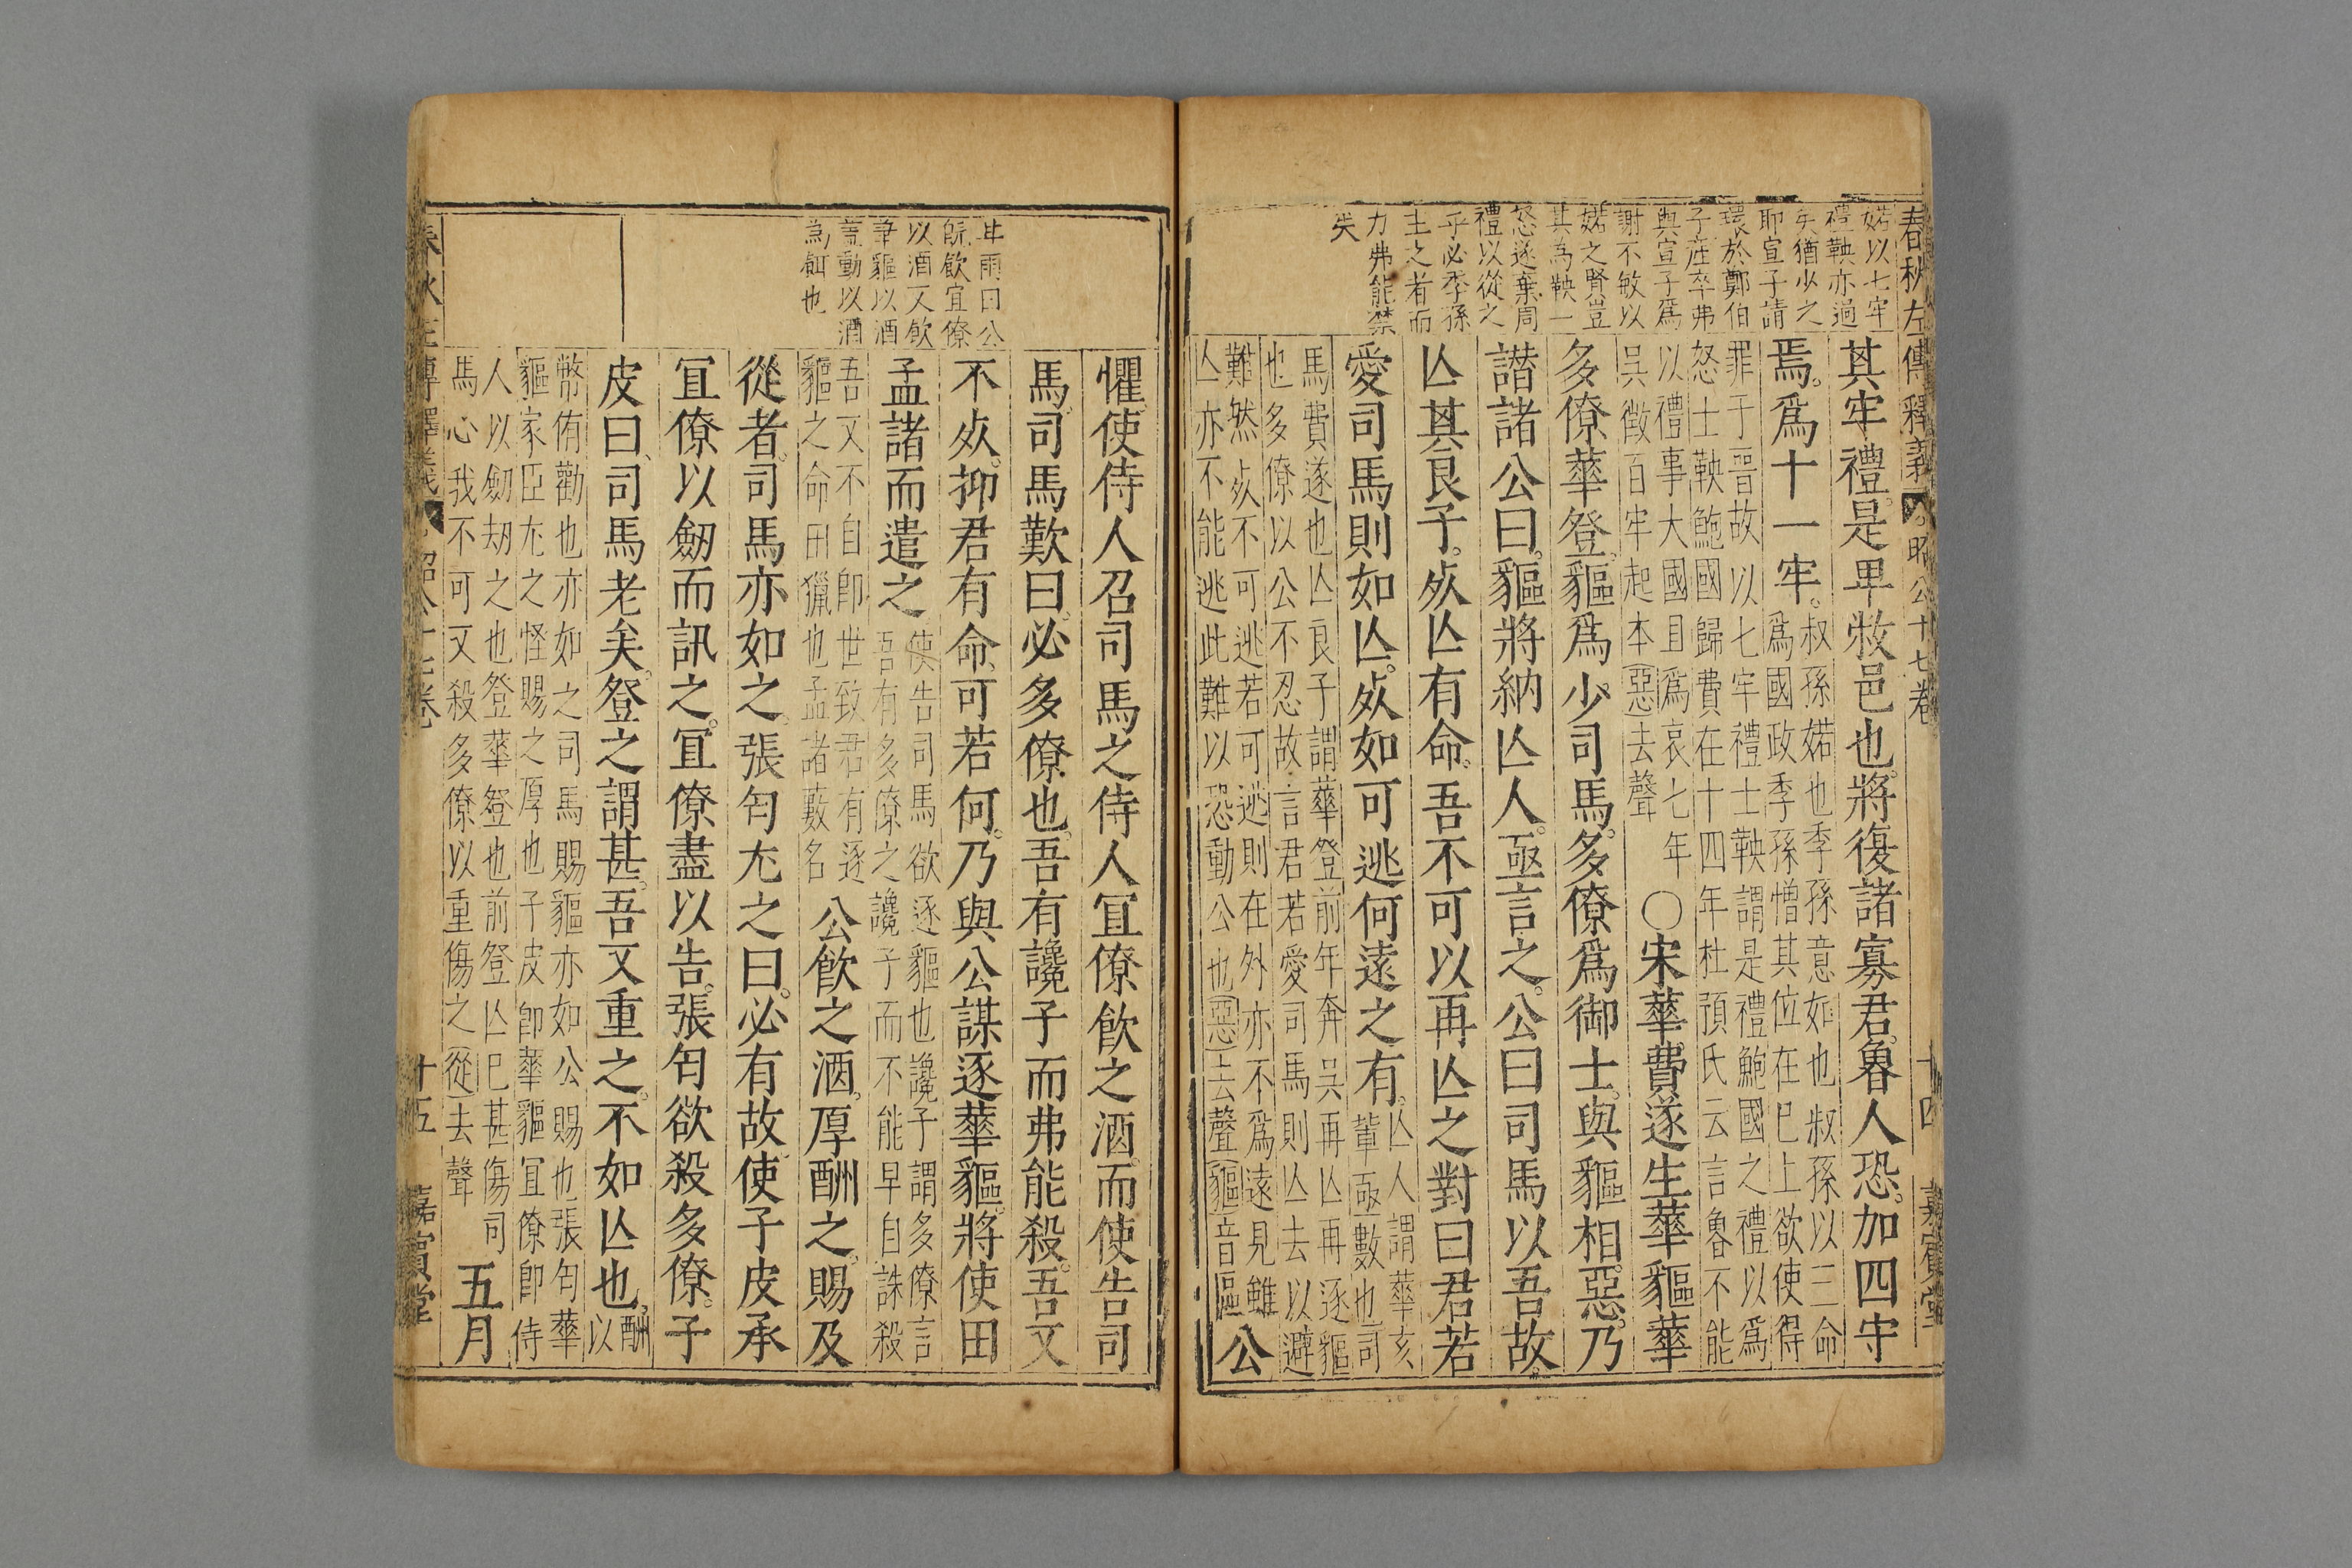 春秋左傳釋義
昭公十七卷
十四
嘉賓堂
婼以七牢
禮鞅亦過
矣猶少之
耶宣子請
環於鄭伯
子產卒弗
與宣子爲
謝不敏以
婼之賢豈
其為鞅一
怒遂棄周
禮以從之
乎必季孫
主之者而
力弗能禁
矣
其牢禮是卑敝邑也將復諸寡君魯人恐加四牢
焉爲十一牢
叔孫婼也季孫意如也叔孫以三命
爲國政季孫憎其位在巳上欲使得
罪于晉故以七牢禮士鞅謂是禮鮑國之禮以爲
怒士鞅鮑國歸費在十四年杜預氏云言魯不能
以禮事大國且爲哀七年
吳徵百牢起本惡去聲
○宋華費遂生華貙華
多僚華登貙爲少司馬多僚爲御士與貙相惡乃
譖諸公曰貙將納亾人亟言之公曰司馬以吾故
亾其良子死亾有命吾不可以再亾之對曰君若
愛司馬則如亾死如可逃何遠之有
亾人謂華亥
輩亟數也司
馬費遂也亾良子謂華登前年奔吳再亾再逐貙
也多僚以公不忍故言君若愛司馬則亾去以避
難然死不可逃若可逃則在外亦不爲遠見雖
亾亦不能逃此難以恐動公也惡去聲貙音傴
公
懼使侍人召司馬之侍人宜僚飲之酒而使告司
馬司馬歎曰必多僚也吾有讒子而弗能殺吾又
不死抑君有命可若何乃與公謀逐華貙將使田
孟諸而遣之
使告司馬欲逐貙也讒子謂多僚言
吾有多僚之讒子而不能早自誅殺
吾又不自卽世致君有逐
貙之命田獵也孟諸藪名
公飮之酒厚酬之賜及
從者司馬亦如之張匄尢之曰必有故使子皮承
宜僚以劒而訊之宜僚盡以告張匄欲殺多僚子
皮曰司馬老矣登之謂甚吾又重之不如亾也
酬
以
幣侑勸也亦如之司馬賜貙亦如公賜也張匄華
貙家臣尢之怪賜之厚也子皮卽華貙宜僚卽侍
人以劒劫之也登華登也前登亾巳甚傷司
馬心我不可又殺多僚以重傷之從去聲
五月
雨曰公
旣飮宜僚
以酒又飮
華貙以酒
蓋動以酒
為餌也
春秋左傳釋義
昭公十七卷
十五
嘉賓堂